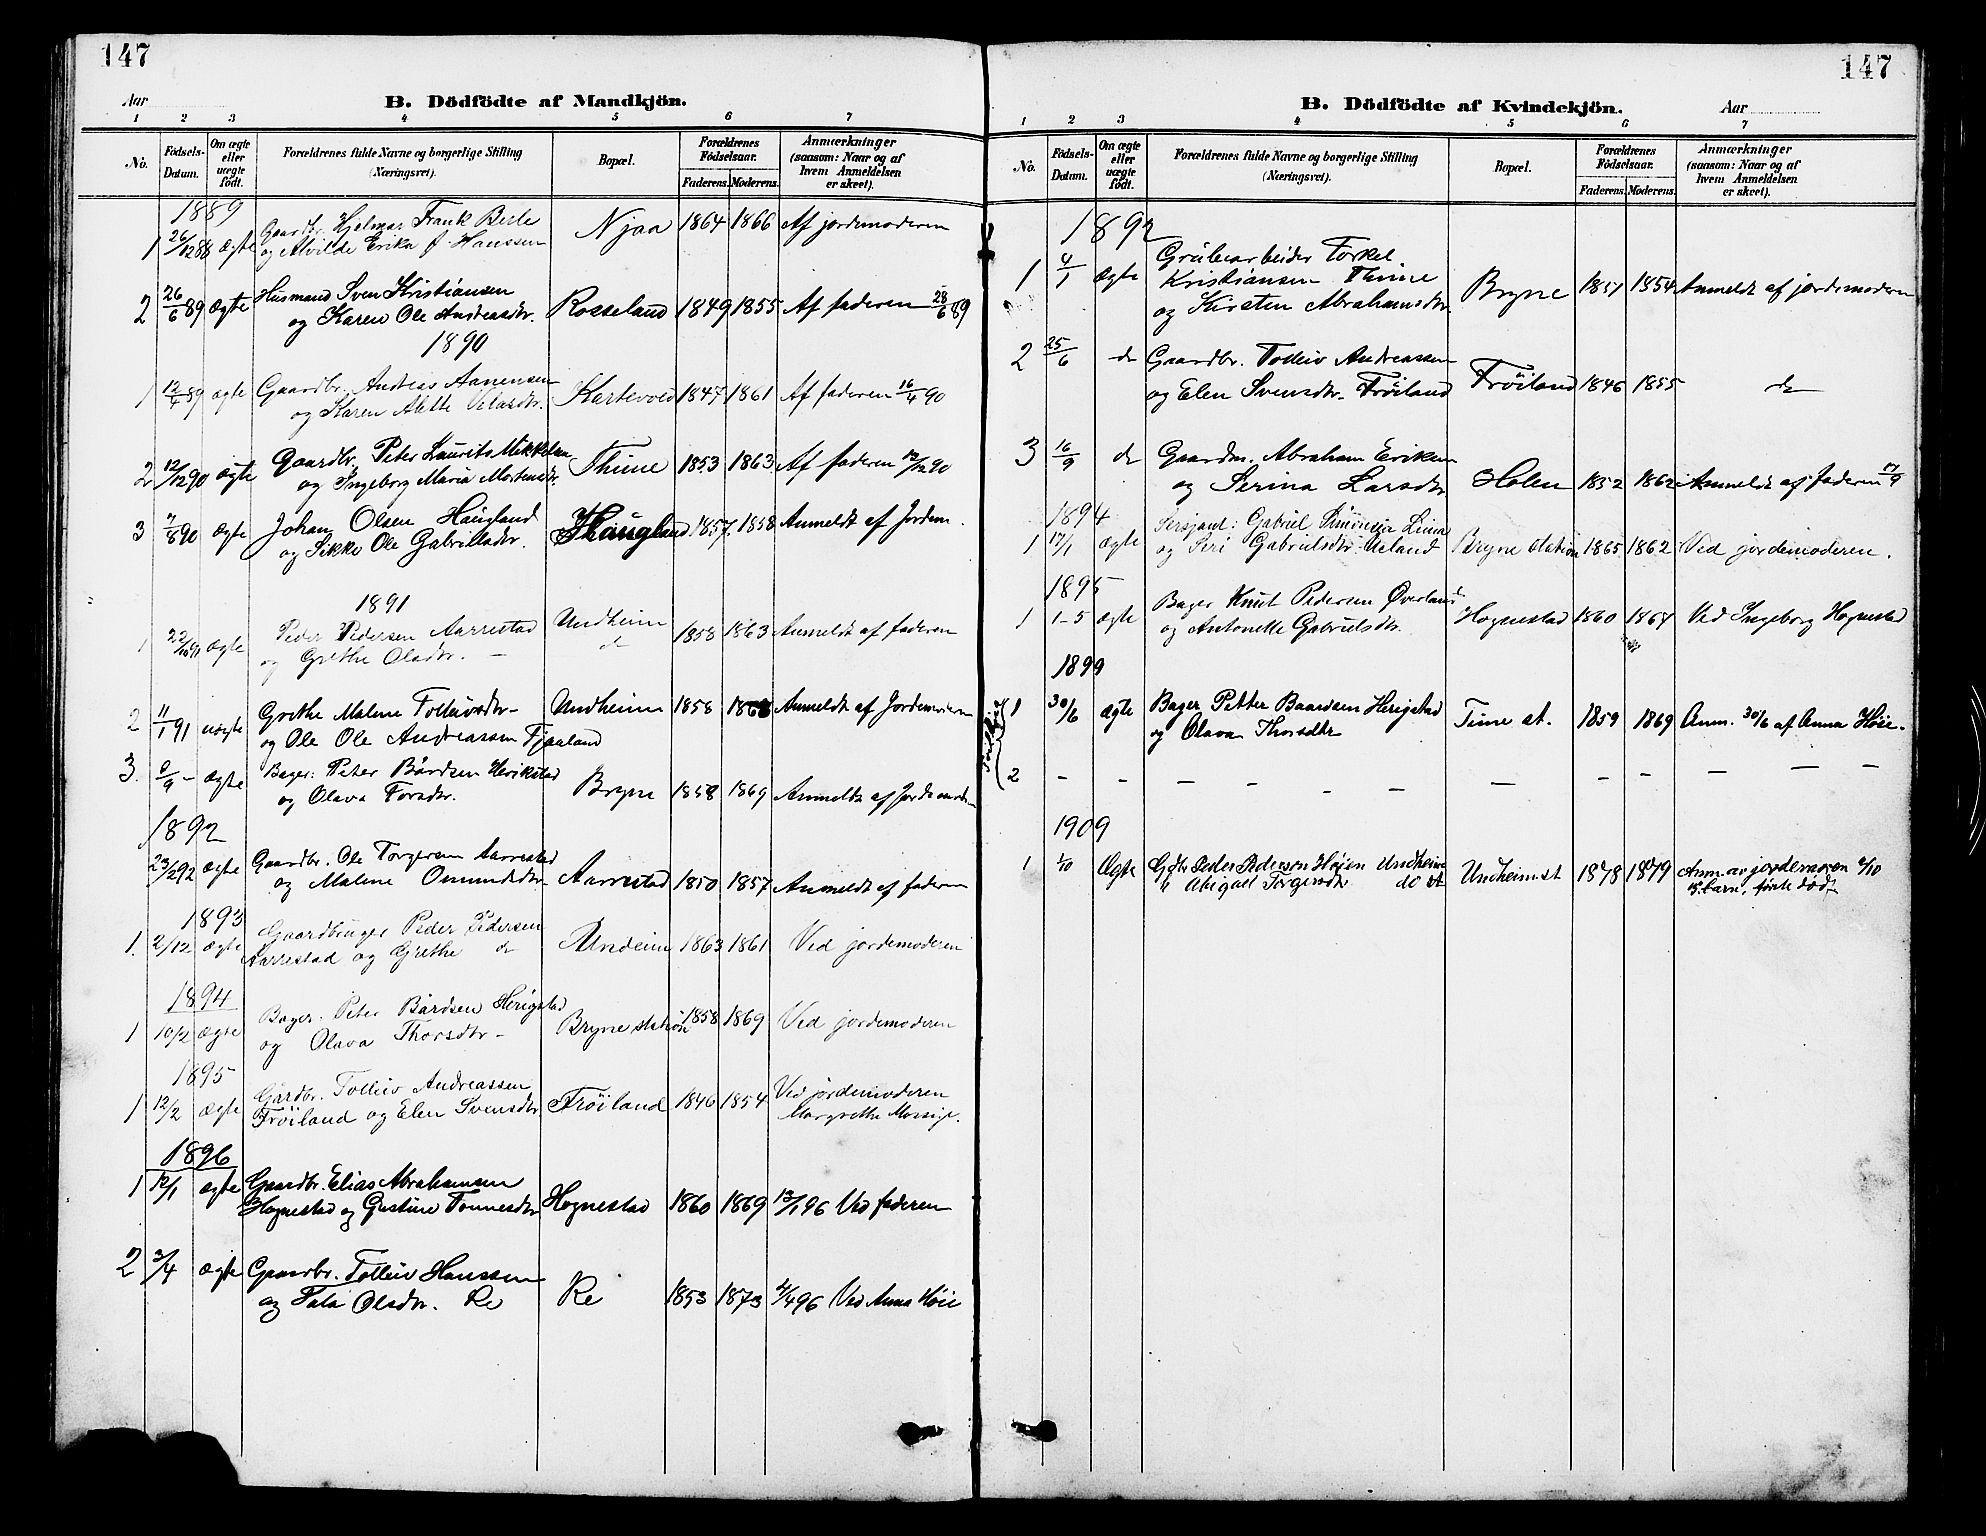 147
Aar
B. Dödfödte af Mandkjön.
1 2 3 4 5 6 7
No.
Födsels-
Datum.
Om ægte
eller
uægte
født.
Forældrenes fulde Navne og borgerlige Stilling
(Næringsvei).
Bopæl.
Forældrenes
Födselsaar.
Faderens. Moderens.
Anmærkninger
(saasom: Naar og af
hvem Anmeldelsen
er skeet).
1889
1 26/12 88 ægte Gaardbr. Hjelmar Frank Berle Njaa 1864 1866 Af jordemoderen
og Alvilde Erika f. Hanssen
2 26/6 89 ægte Husmand Sven Kristiansen Rosseland 1849 1855 Af faderen 28/6 89
og Karen Ole Andreasdtr.
1890
1 12/4 89 ægte Gaardbr. Andreas Aanensen 1847 1861 Af faderen 16/4 90
og Karen Alette
2 12/12 90 ægte Gaardbr. Peter Laurits Mikkelsen Thime 1853 1863 Af faderen 90
og Ingeborg Maria Mortensdtr.
3 7/8 90 ægte Johan Olsen Haugland Haugland 1857 1858 Anmeldt af Jordem.
og Sikke Ole Gabrielsdtr.
1891
1 22/10 91 ægte Peder Pedersen Aarrestad Undheim 1858 1863 Anmeldt af faderen
og Grethe Olsdtr. – do
2 11/1 91 uægte Grethe Malene Tolleivsdtr- Undheim 1858 1868 Anmeldt af Jordemoderen
og Ole Ole Andreassen Fjaaland
3. 9/9 – ægte Bager: Peter Bårdsen Herikstad Bryne 1858 1869 Anmeldt af Jordemodr.
og Olava Torsdtr.
1892
23/2 92 ægte Gaardbr. Ole Torgersen Aarrestad Aarrestad 1850 1857 Anmeldt af faderen
og Malene Omundsdtr-
1893
1. 2/12 ægte Gaardbruger Peder Pedersen Undeim 1863 1861 Ved jordemoderen
Aarrestad og Grethe do
1894
1 10/2 ægte Bager. Peter Bårdsen Herigstad Bryne station 1858 1869 Ved jordemoderen
og Olava Thorsdtr-
1895
1 12/2 ægte Gårdbr. Tolleiv Andreassen Frøiland 1846 1854 Ved jordemoderen
Frøiland og Elen Svensdtr Margrethe Mossige.
1896
1 12/1 ægte Gaardbr. Elias Abrahamsen Hognestad 1860 1869 13/1 96 Ved faderen
Hognestad og Gustine Tonnesdtr
2 3/4 ægte Gaardbr. Tolleiv Hanssen Re 1853 1873 4/4 96 Ved Anna Høie
og Tala Olsdtr. Re
147
B. Dödfödte af Kvindekjön.
Aar
1 2 3 4 5 6 7
No.
Födsels-
Datum.
Om ægte
eller
uægte
født.
Forældrenes fulde Navne og borgerlige Stilling
(Næringsvei).
Bopæl.
Forældrenes
Födselsaar.
Faderens. Moderens.
Anmærkninger
(saasom: Naar og af
hvem Anmeldelsen
er skeet).
1892
1 4/1 ægte Grubearbeider Torkel
Kristiansen Thime Bryne 1851 1854 Anmeldt af jordemoderen
og Kirsten Abrahamsdtr.
2 25/6 do Gaardbr. Tolleiv Andreassen
og Elen Svensdtr- Frøiland Frøiland 1846 1855 do
3 16/9 do Gaardm. Abraham Eriksen
og Serina Larsdtr Holen 1852 1862 Anmeldt af faderen 17/9
1894
1 17/1 ægte Sersjant: Gabriel Simonsen Lima
og Siri Gabrielsdtr. Ueland Bryne station 1865 1862 Ved jordemoderen.
1895
1 1-5 ægte Bager Knut Pedersen Øverland Hognestad 1860 1864 Ved Ingeborg Hognestad
og Antonette Gabrielsdtr.
1899
Tvillinger
1 30/6 ægte Bager Petter Baardsen Herigstad Time st. 1859 1869 Anm. 30/6 af Anna Høie.
og Olava Thorsdtr
2 – – – – – – – – – – – –
1909
1 1/10 Ægte Gdbr Peder Pedersen Høien Undheim Undheim st 1878 1879 Anm. av jordemoren 2/10
" Abigael Torgersdtr do st 15. barn, første dødf.